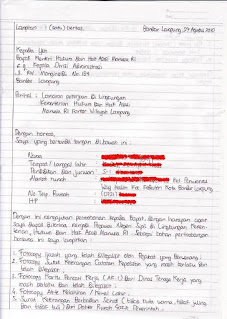 Lampiran : 1 (satu) berkas
Bandar Lampung, 27 Agustus 2010
Kepada Yth
Bapak Menteri Hukum dan Hak Asasi Manusia RI
c.q. Kepala Divisi Administrasi
Jl. RW. Monginsidi No. 184
Bandar Lampung
Perihal : Lamaran pekerjaan di Lingkungan
Kementerian Hukum Dan Hak Asasi
Manusia RI Kantor Wilayah Lampung
Dengan hormat,
Saya yang bertanda tangan di bawah ini :
Nama :
Tempat / tanggal lahir :
Pendidikan dan jurusan : S-1
Alamat rumah : Kel Perumnas
Way Halim Kec Kedaton Kota Bandar Lampung
No Telp. Rumah : (0721)
HP :
Dengan ini mengajukan permohonan kepada Bapak, dengan harapan agar
Saya dapat diterima menjadi Pegawai Negeri Sipil di Lingkungan Kemen-
terian Hukum dan Hak Asasi Manusia RI. Sebagai bahan pertimbangan
bersama ini saya lampirkan :
1. Fotocopy Ijazah yang telah dilegalisir oleh Pejabat yang Berwenang ;
2. Fotocopy Surat Keterangan Catatan Kepolisian yang masih berlaku dan
telah dilegalisir ;
3. Fotocopy Kartu Pencari Kerja (AK-1) dari Dinas Tenaga Kerja yang
masih berlaku dan telah dilegalisir ;
4. Fotocopy Akte Kelahiran / Kenal Lahir ;
5. Surat Keterangan Berbadan Sehat ( tidak buta warna, tidak
dan tidak tuli ) dari Dokter Rumah Sakit Pemerintah ;